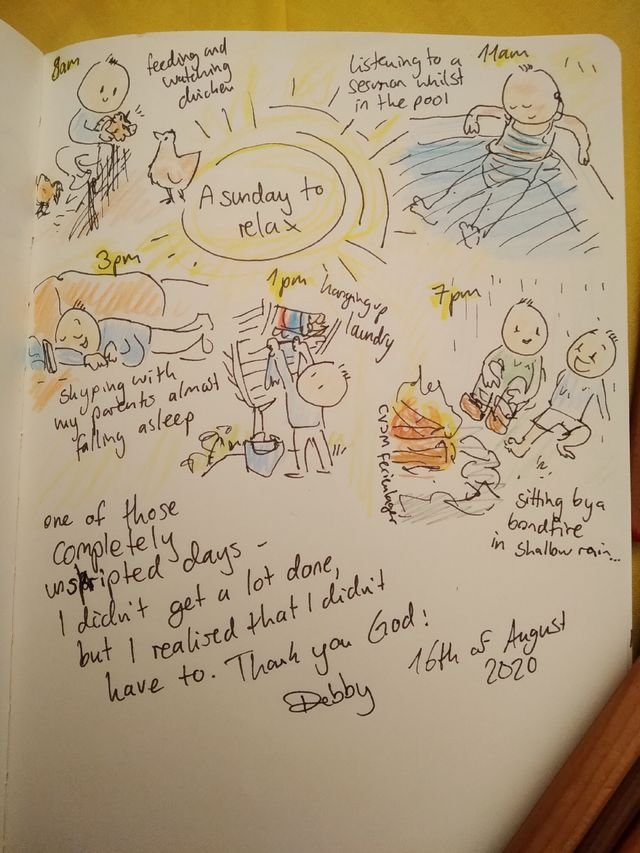 8am
feeding and
watching
chicken
listening to a
sermon whilst
in the pool
11am
A sunday to
relax
3pm
skyping with
my parents almost
falling asleep
1pm
hanging up
laundry
7pm
CVJM Ferienlager
sitting by a
bondfire
in shallow rain...
one of those
completely
unskripted days -
I didn't get a lot done,
but I realised that I didn't
have to. Thank you God!
Debby
16th of August
2020